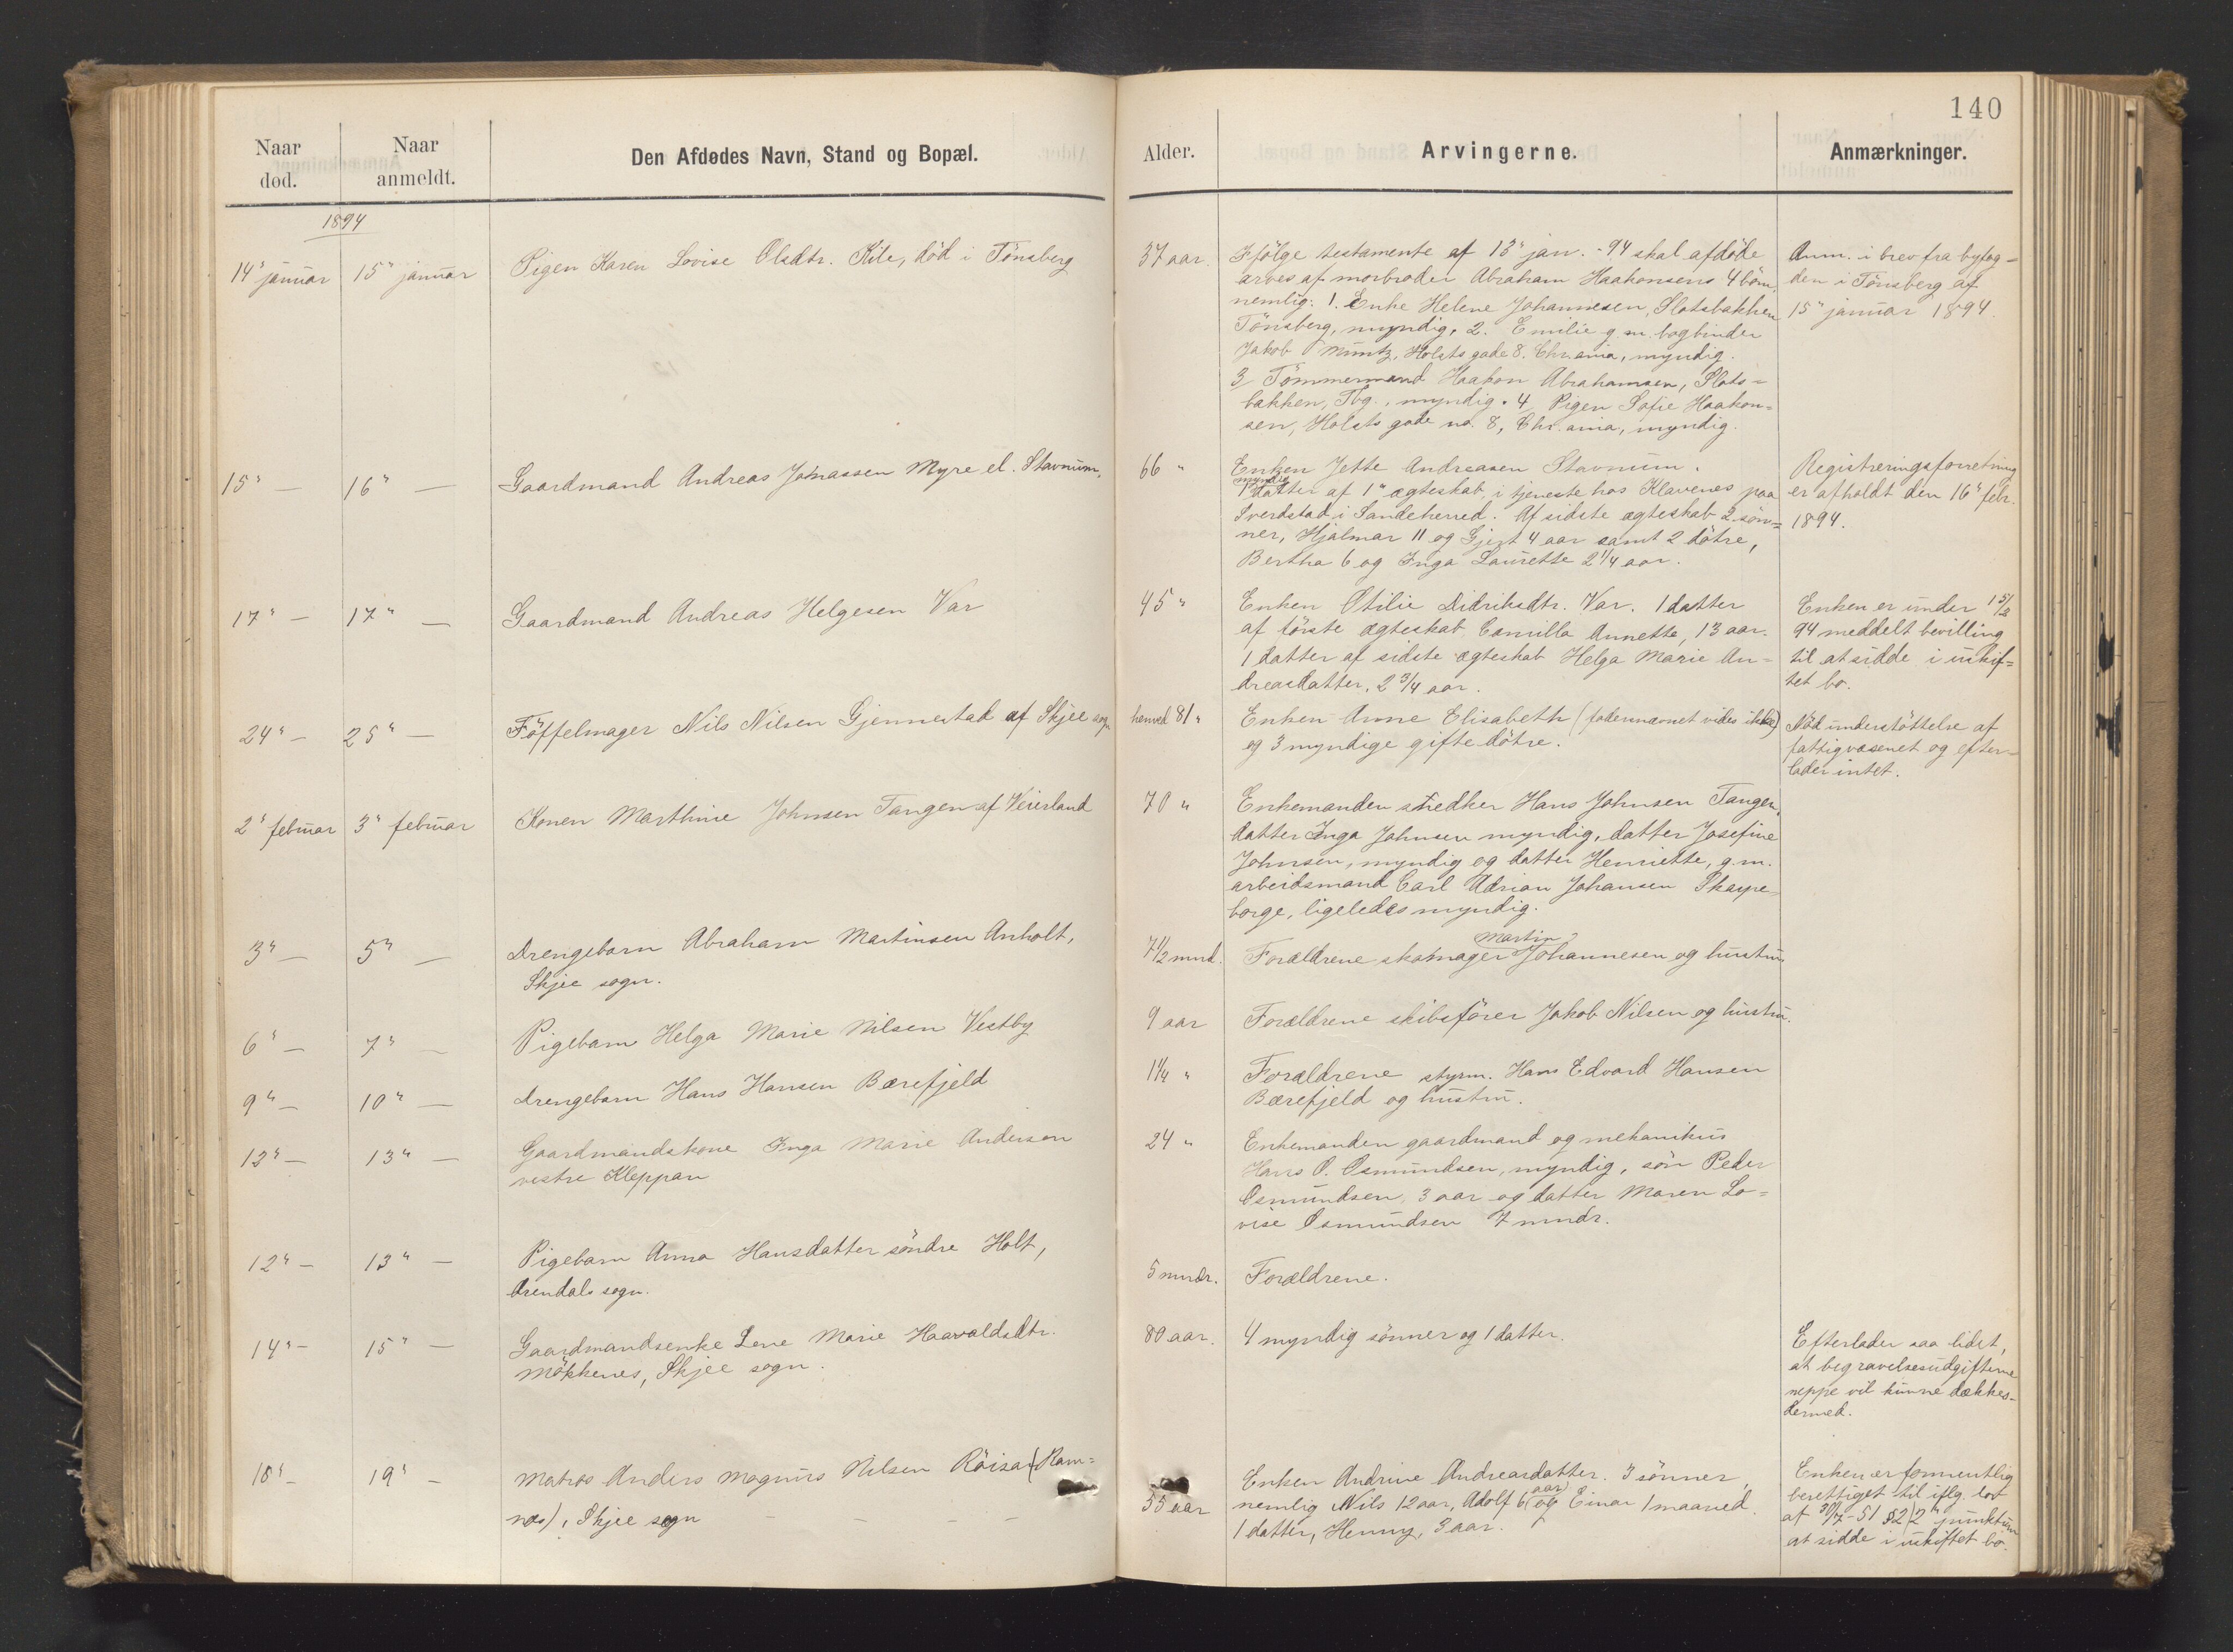 140
Naar død.
Naar anmeldt.
Den Afdødes Navn, Stand og Bopæl.
Alder.
Arvingerne.
Anmærkninger.
1894
14" januar
15" januar
Pigen Karen Lovise Olsdtr. Kile, död i Tönsberg
37 aar.
Ifölge testamente af 13" jan. -94 skal afdöde
arves af morbroder Abraham Haakonsens 4 börn,
nemlig: 1. Enke Helene Johannesen, Slotsbakken
Tönsberg, myndig, 2. Emilie g. m. bogbinder
Jakob Müntz, Holsts gade 8. Chr.ania, myndig.
3/ Tömmermand Haakon Abrahamsen, Slots=
bakken, Tbg., myndig. 4/ Pigen Sofie Haakon=
sen, Holsts gade no. 8, Chr.ania, myndig.
Anm. i brev fra byfog=
den i Tönsberg af
15" januar 1894.
15" —
16" —
Gaardmand Andreas Jonassen Myre el. Stavnum.
66 "
Enken Jette Andreasen Stavnum.
myndig
1 datter af 1" ægteskab, i tjeneste hos Klavenes paa
Sverdstad i Sandeherred. Af sidste ægteskab 2 sön=
ner, Hjalmar 11 og Gjert 4 aar samt 2 dötre,
Bertha 6 og Inga Laurette 2 1/4 aar.
Registreringsforretning
er afholdt den 16" febr.
1894.
17" —
17" —
Gaardmand Andreas Helgesen Var
45 "
Enken Otilie Didriksdtr. Var. 1 datter
af förste ægteskab Camilla Annette, 13 aar.
1 datter af sidste ægteskab Helga Marie An=
dreasdatter, 2 3/4 aar.
Enken er under 15/2
94 meddelt bevilling
til at sidde i uskif=
tet bo.
24" —
25" —
Töffelmager Nils Nilsen Gjennestad af Skjee sogn
henved 81 "
Enken Anne Elisabeth (federnavnet vides ikke)
og 3 myndige gifte dötre.
Nöd understöttelse af
fattigvæsenet og efter=
lader intet.
2" februar
3" februar
Konen Marthine Johnsen Tangen af Veierland
70 "
Enkemanden snedker Hans Johnsen Tangen,
datter Inga Johnsen myndig, datter Josefine
Johnsen, myndig og datter Henriette, g. m.
arbeidsmand Carl Adrian Johansen Skarpe=
borge, ligeledes myndig.
3" —
5" —
Drengebarn Abraham Martinsen Anholt,
Skjee sogn.
7 1/2 mnd.
Martin
Forældrene skomager Johannesen og hustru
6" —
7" —
Pigebarn Helga Marie Nilsen Vestby
9 aar
Forældrene skibsförer Jakob Nilsen og hustru.
9" —
10" —
Drengebarn Hans Hansen Bærefjeld
1 1/4 "
Forældrene styrm. Hans Edvard Hansen
Bærefjeld og hustru.
12" —
13" —
Gaardmandskone Inga Marie Andersen
vestre Kleppan
24 "
Enkemanden gaardmand og mekanikus
Hans O. Osmundsen, myndig, sön Peder
Osmundsen, 3 aar og datter Maren Lo=
vise Osmundsen 7 mndr.
12" —
13" —
Pigebarn Anna Hansdatter söndre Holt,
Arendals sogn.
5 mndr.
Forældrene.
14" —
15" —
Gaardmandsenke Lene Marie Haavaldsdtr.
Mökkenes, Skjee sogn.
80 aar.
4 myndig sönner og 1 datter.
Efterlader saa lidet,
at begravelsesudgifterne
neppe vil kunne dækkes
dermed.
18" —
19" —
Matros Anders Magnus Nilsen Röisa (Ram=
nes), Skjee sogn
55 aar
Enken Andrine Andreasdatter. 3 sönner,
nemlig Nils 12 aar, Adolf 6 (aar) og Einar 1 maaned.
1 datter, Henny, 3 aar.
Enken er formentlig
berettiget til iflg. lov
af 30/7-51 § 2, 2" punktum
at sidde i uskiftet bo.